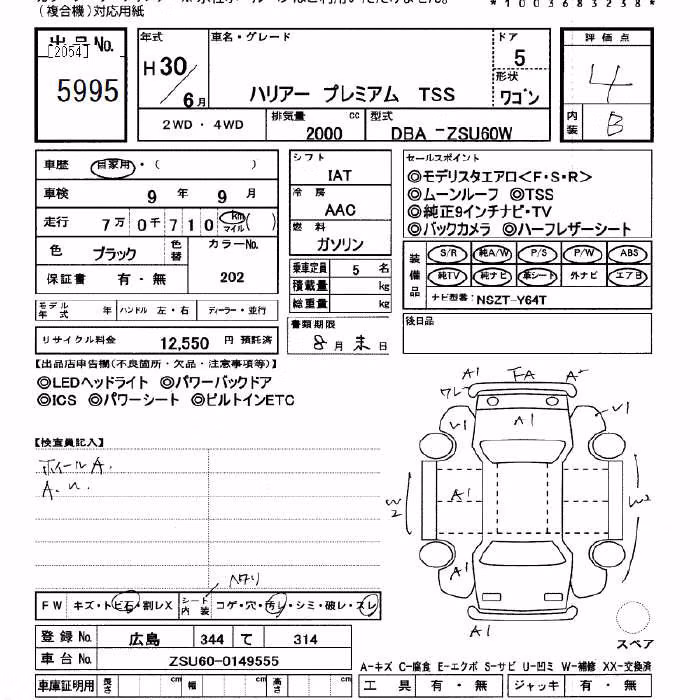 (複合機)対応用紙
*1003683238*
出品No.
[2054]
5995
年式
H30/6月
車名・グレード
ハリアー プレミアム TSS
ドア
5
形状
ワゴン
2WD・4WD
排気量
2000 cc
型式
DBA-ZSU60W
評価点
4
内装
B
車歴 自家用・( )
車検 9年 9月
走行 7万0千710 km マイル ( )
色 ブラック 色替
カラーNo.
202
保証書 有・無
モデル年式 年 ハンドル 左・右 ディーラー・並行
リサイクル料金 12,550 円 預託済
シフト
IAT
冷房
AAC
燃料
ガソリン
乗車定員 5 名
積載量 kg
総重量 kg
書類期限
8月末日
セールスポイント
◎モデリスタエアロ<F・S・R>
◎ムーンルーフ ◎TSS
◎純正9インチナビ・TV
◎バックカメラ ◎ハーフレザーシート
装備品
S/R 純A/W P/S P/W ABS
純TV 純ナビ 革シート 外ナビ エアB
ナビ型番: NSZT-Y64T
後日品
【出品店申告欄(不良箇所・欠品・注意事項等)】
◎LEDヘッドライト ◎パワーバックドア
◎ICS ◎パワーシート ◎ビルトインETC
【検査員記入】
ホイールA.
A1
A1
A1
A1
A1
A1
W2
スペア
FW キズ・トビ石・割レX シート内装 コゲ・穴・汚レ・シミ・破レ・スレ
登録No. 広島 344 て 314
車台No. ZSU60-0149555
車庫証明用 長さ cm 幅 cm 高さ cm
A-キズ C-腐食 E-エクボ S-サビ U-凹ミ W-補修 XX-交換済
工具 有・無 ジャッキ 有・無